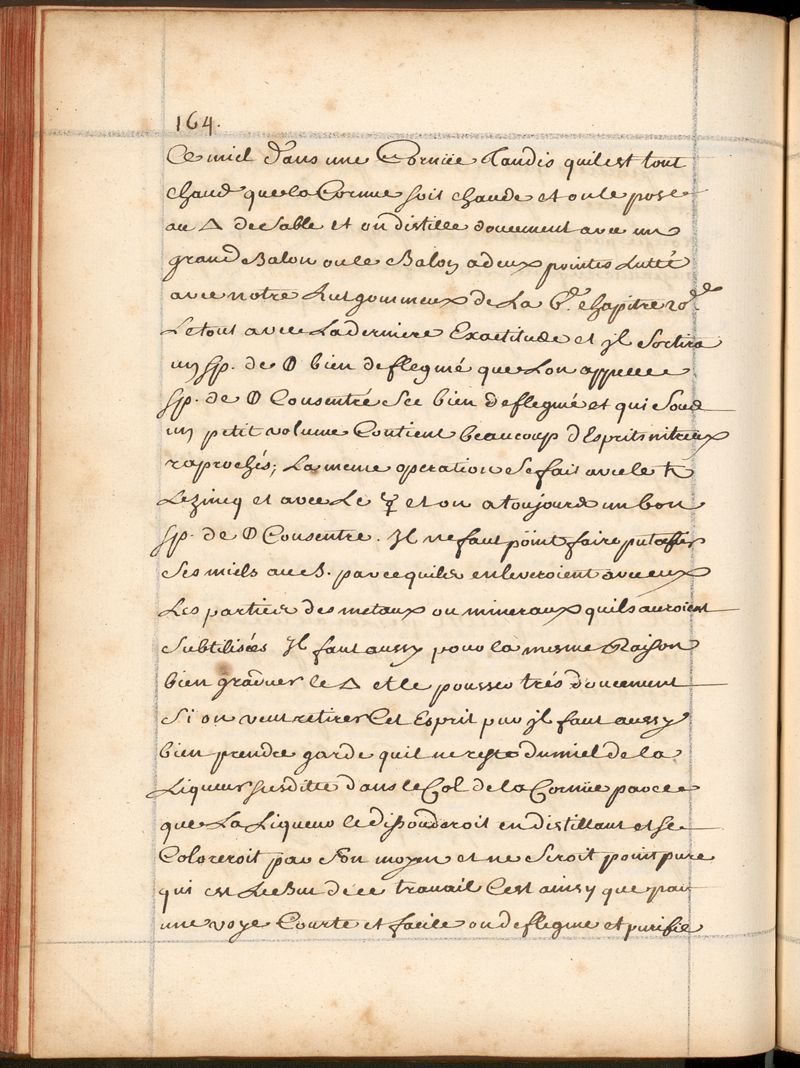 164.
Ce miel dans une Cornüe Tandis quil est tout
chaud que la Cornue soit chaude et on le pose
au △ de Sable et on distille doucement avec un
grand Balon ou le Balon a deux pointes Lutté
avec notre Lut gommeux de La 6.e chapitre 20.e
Le tout avec La derniere Exactitude et jl Sortira
un sp. de ⦶ bien deflegmé que Lon appelle
sp. de ⦶ Consentré Sec bien deflegmé et qui Sous
un petit volume Contient beaucoup d'Esprits nitreux
raprochés; La meme operation Se fait avec le ♄
Le zincq et avec Le ☿ et on a toujours un bon
sp. de ⦶ Consentre. Jl ne faut point faire
Ses miels au B. parce quils enleveroient avec eux
Les parties des metaux ou mineraux quils auroient
Subtilisées Jl faut aussy pour la mesme Raison
bien graduer le △ et le pousser trés doucement
Si on veut retirer Cet Esprit pur jl faut aussy
bien prendre garde quil ne reste du miel de la
Liqueur susditte dans le Col de la Cornüe parce
que La Liqueur le dissouderoit en distillant et se
Coloreroit par Son moyen et ne Seroit point pure
qui est Le But de ce travail C'est ainsy que par
une voye Courte et facile on deflegme et purifie